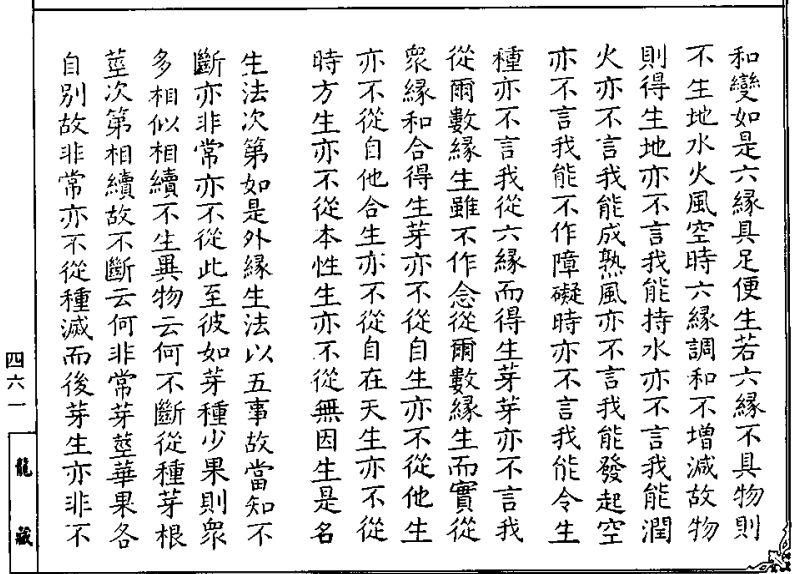 和變如是六緣具足便生若六緣不具物則
不生地水火風空時六緣調和不增減故物
則得生地亦不言我能持水亦不言我能潤
火亦不言我能成熟風亦不言我能發起空
亦不言我能不作障礙時亦不言我能令生
種亦不言我從六緣而得生芽芽亦不言我
從爾數緣生雖不作念從爾數緣生而實從
眾緣和合得生芽亦不從自生亦不從他生
亦不從自他合生亦不從自在天生亦不從
時方生亦不從本性生亦不從無因生是名
生法次第如是外緣生法以五事故當知不
斷亦非常亦不從此至彼如芽種少果則眾
多相似相續不生異物云何不斷從種芽根
莖次第相續故不斷云何非常芽莖華果各
自別故非常亦不從種滅而後芽生亦非不
四六一
龍藏